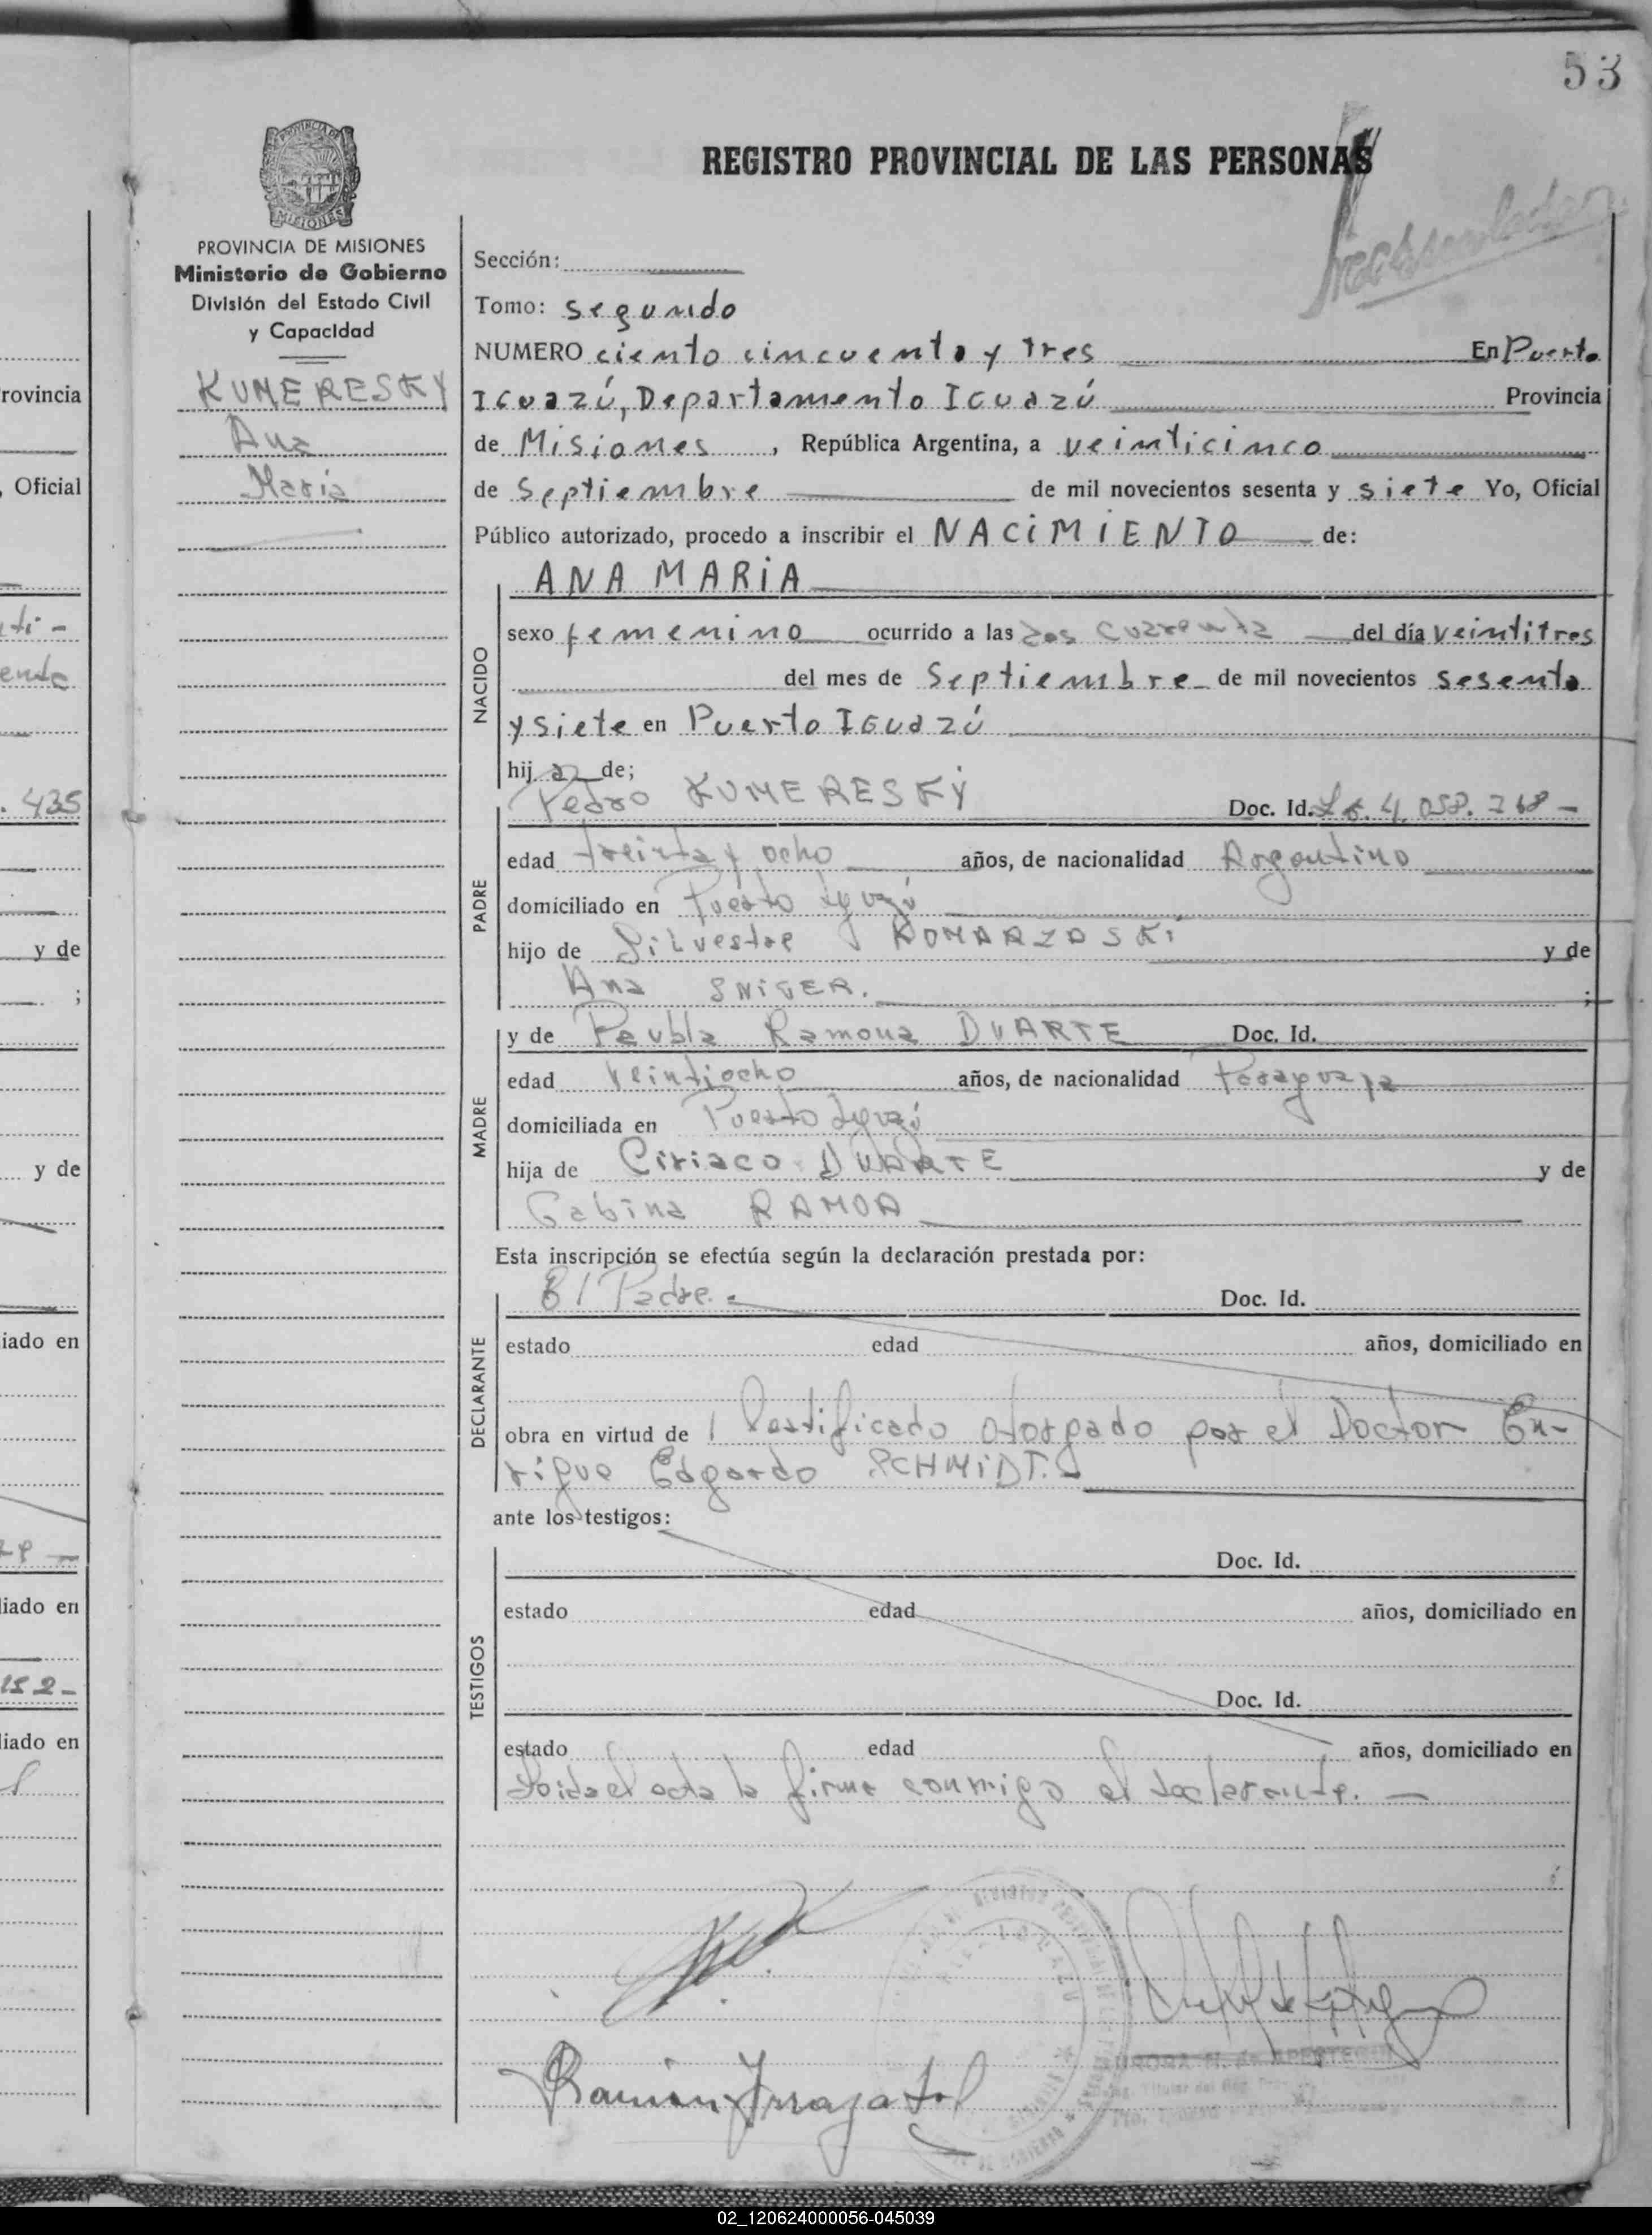 53
REGISTRO PROVINCIAL DE LAS PERSONAS
PROVINCIA DE MISIONES
Ministerio de Gobierno
División del Estado Civil
y Capacidad
KUMERESKY
Ana
Maria
Sección:
Tomo: segundo
NUMERO ciento cincuenta y tres En Puerto
IGuazú, Departamento IGuazú Provincia
de Misiones, República Argentina, a veinticinco
de Septiembre de mil novecientos sesenta y siete Yo, Oficial
Público autorizado, procedo a inscribir el NACIMIENTO de:
ANA MARIA
NACIDO
sexo femenino ocurrido a las dos cuarenta del día veintitres
del mes de Septiembre de mil novecientos sesenta
y siete en Puerto IGuazú
hij a de;
PADRE
Pedro KUMERESKY Doc. Id. L.E. 4.058.768-
edad treinta y ocho años, de nacionalidad Argentino
domiciliado en Puerto Iguazú
hijo de Silvestre KOMARZOSKI y de
Ana SNIGER.
;
MADRE
y de Paubla Ramona DUARTE Doc. Id.
edad veintiocho años, de nacionalidad Paraguaya
domiciliada en Puerto Iguazú
hija de Ciriaco DUARTE y de
Gabina RAMOA
Esta inscripción se efectúa según la declaración prestada por:
DECLARANTE
El Padre.- Doc. Id.
estado edad años, domiciliado en
obra en virtud de Certificado otorgado por el Doctor En-
rique Edgardo SCHMIDT.-
ante los testigos:
TESTIGOS
Doc. Id.
estado edad años, domiciliado en
Doc. Id.
estado edad años, domiciliado en
Leida el acta la firma conmigo el declarante.-
Ramón
rovincia
, Oficial
. 435
y de
;
y de
iado en
liado en
152-
liado en
02_120624000056-045039